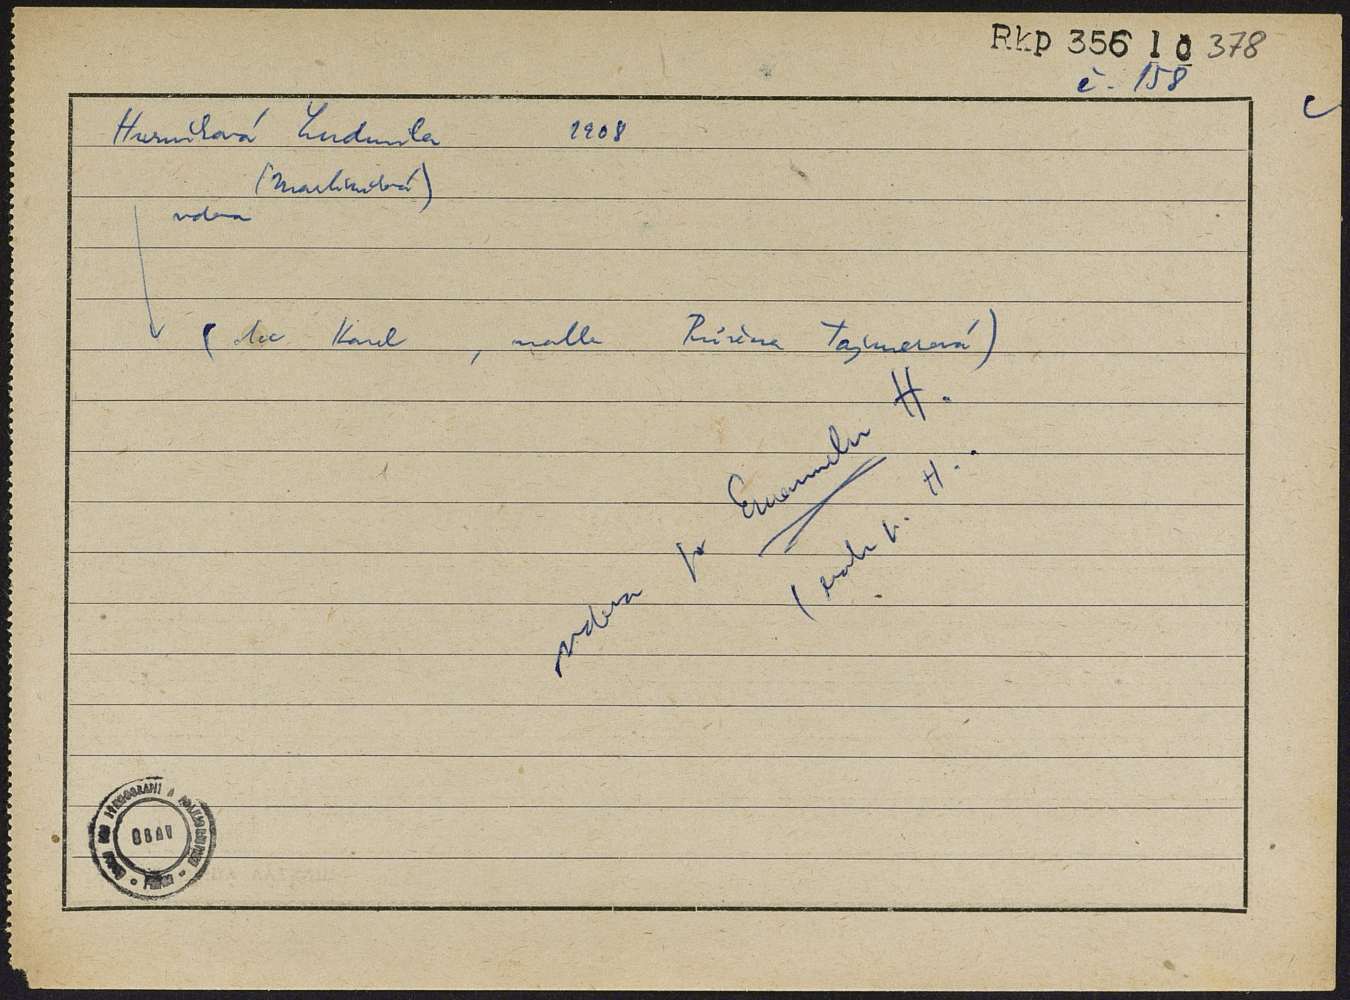 Rkp 356 I 0 378
č. 158
Hurníková Ludmila 1908
(Martínková)
vdova
(otec Karel, matka Růžena Tajmerová)
vdova po Emanuelu H.
H..
ÚSTAV PRO ETNOGRAFII A FOLKLORISTIKU
ČSAV
PRAHA